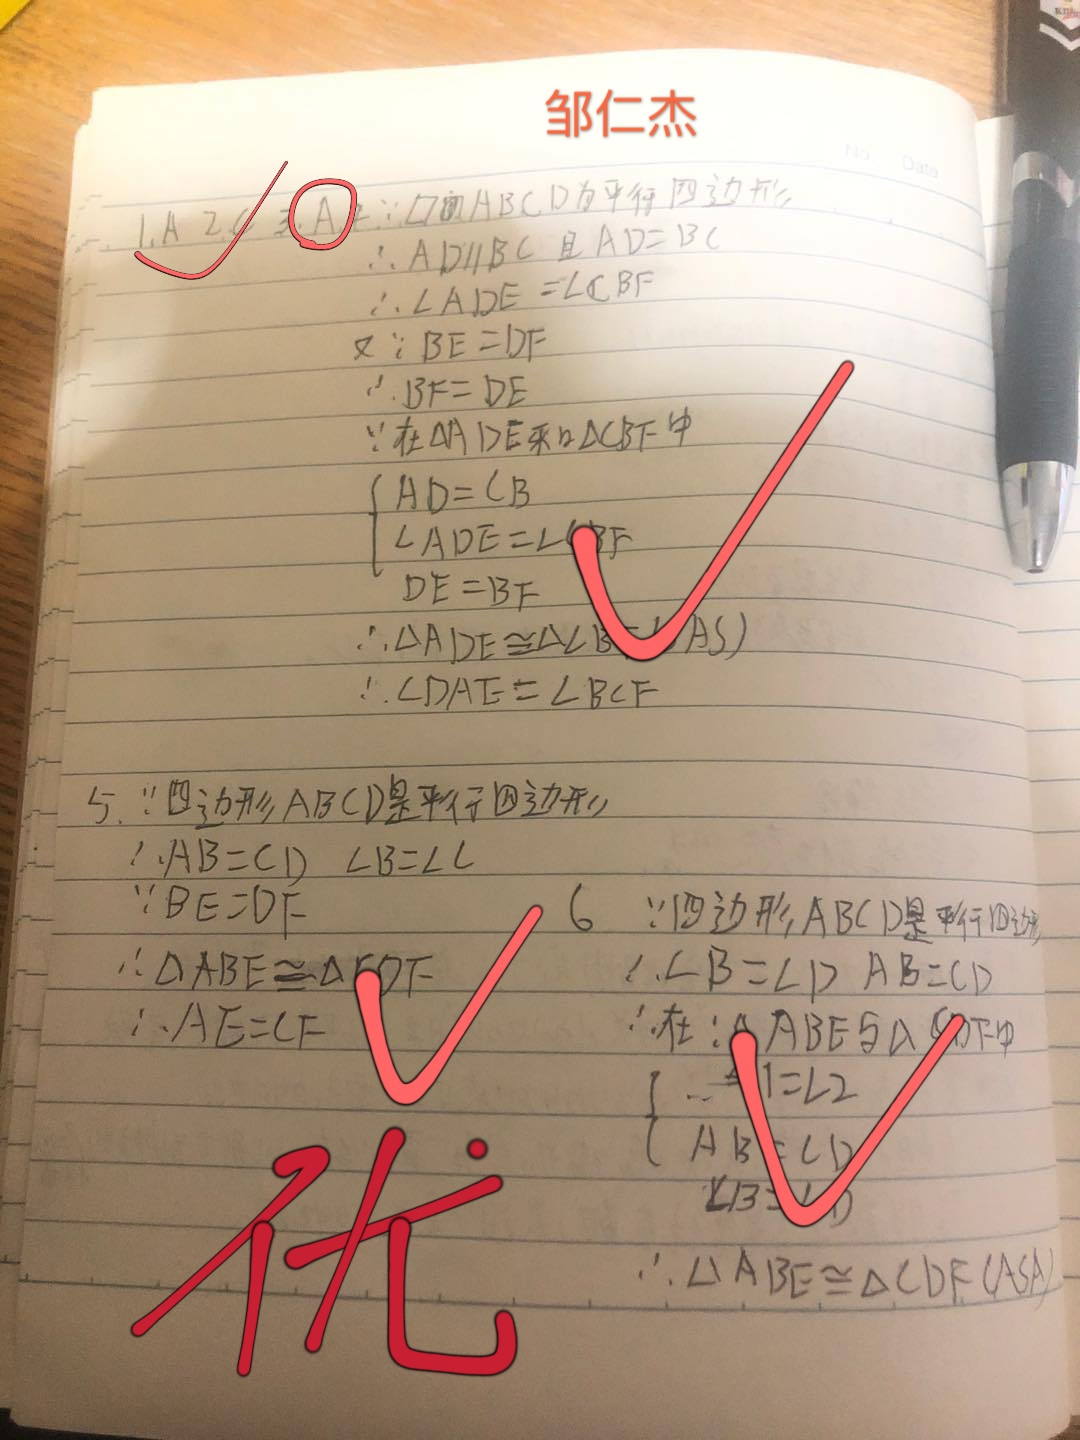 邹仁杰
No. Date
1.A 2.C 3.A 4 ∵四边ABCD为平行四边形
∴AD∥BC 且AD=BC
∴∠ADE=∠CBF
又∵BE=DF
∴BF=DE
∵在△ADE和△CBF中
AD=CB
∠ADE=∠CBF
DE=BF
∴△ADE≌△CBF(SAS)
∴∠DAE=∠BCF
5.∵四边形ABCD是平行四边形
∴AB=CD ∠B=∠C
∵BE=DF
∴△ABE≌△CDF
∴AE=CF
6 ∵四边形ABCD是平行四边形
∴∠B=∠D AB=CD
∴在:△ABE与△CDF中
∠1=∠2
AB=CD
∠B=∠D
∴△ABE≌△CDF(ASA)
优